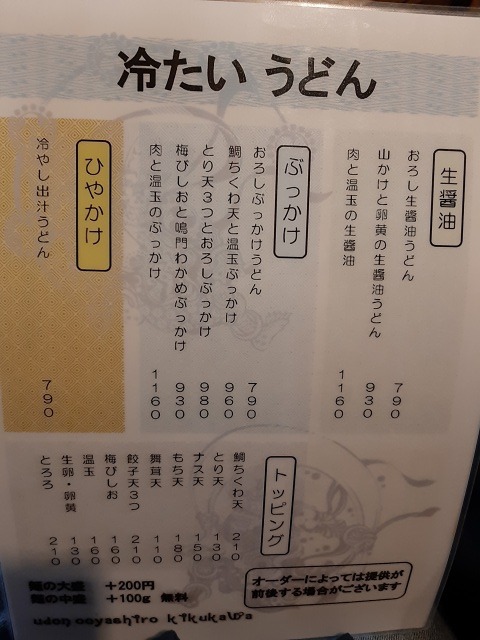 冷たい うどん
生醤油
おろし生醤油うどん 790
山かけと卵黄の生醤油うどん 930
肉と温玉の生醤油 1160
ぶっかけ
おろしぶっかけうどん 790
鯛ちくわ天と温玉ぶっかけ 960
とり天3つとおろしぶっかけ 980
梅びしおと鳴門わかめぶっかけ 930
肉と温玉のぶっかけ 1160
ひやかけ
冷やし出汁うどん 790
トッピング
鯛ちくわ天 210
とり天 130
ナス天 150
もち天 180
舞茸天 110
餃子天3つ 210
梅びしお 160
温玉 160
生卵・卵黄 130
とろろ 210
オーダーによっては提供が
前後する場合がございます
麺の大盛 +200円
麺の中盛 +100g 無料
udon ooyashiro kikukawa